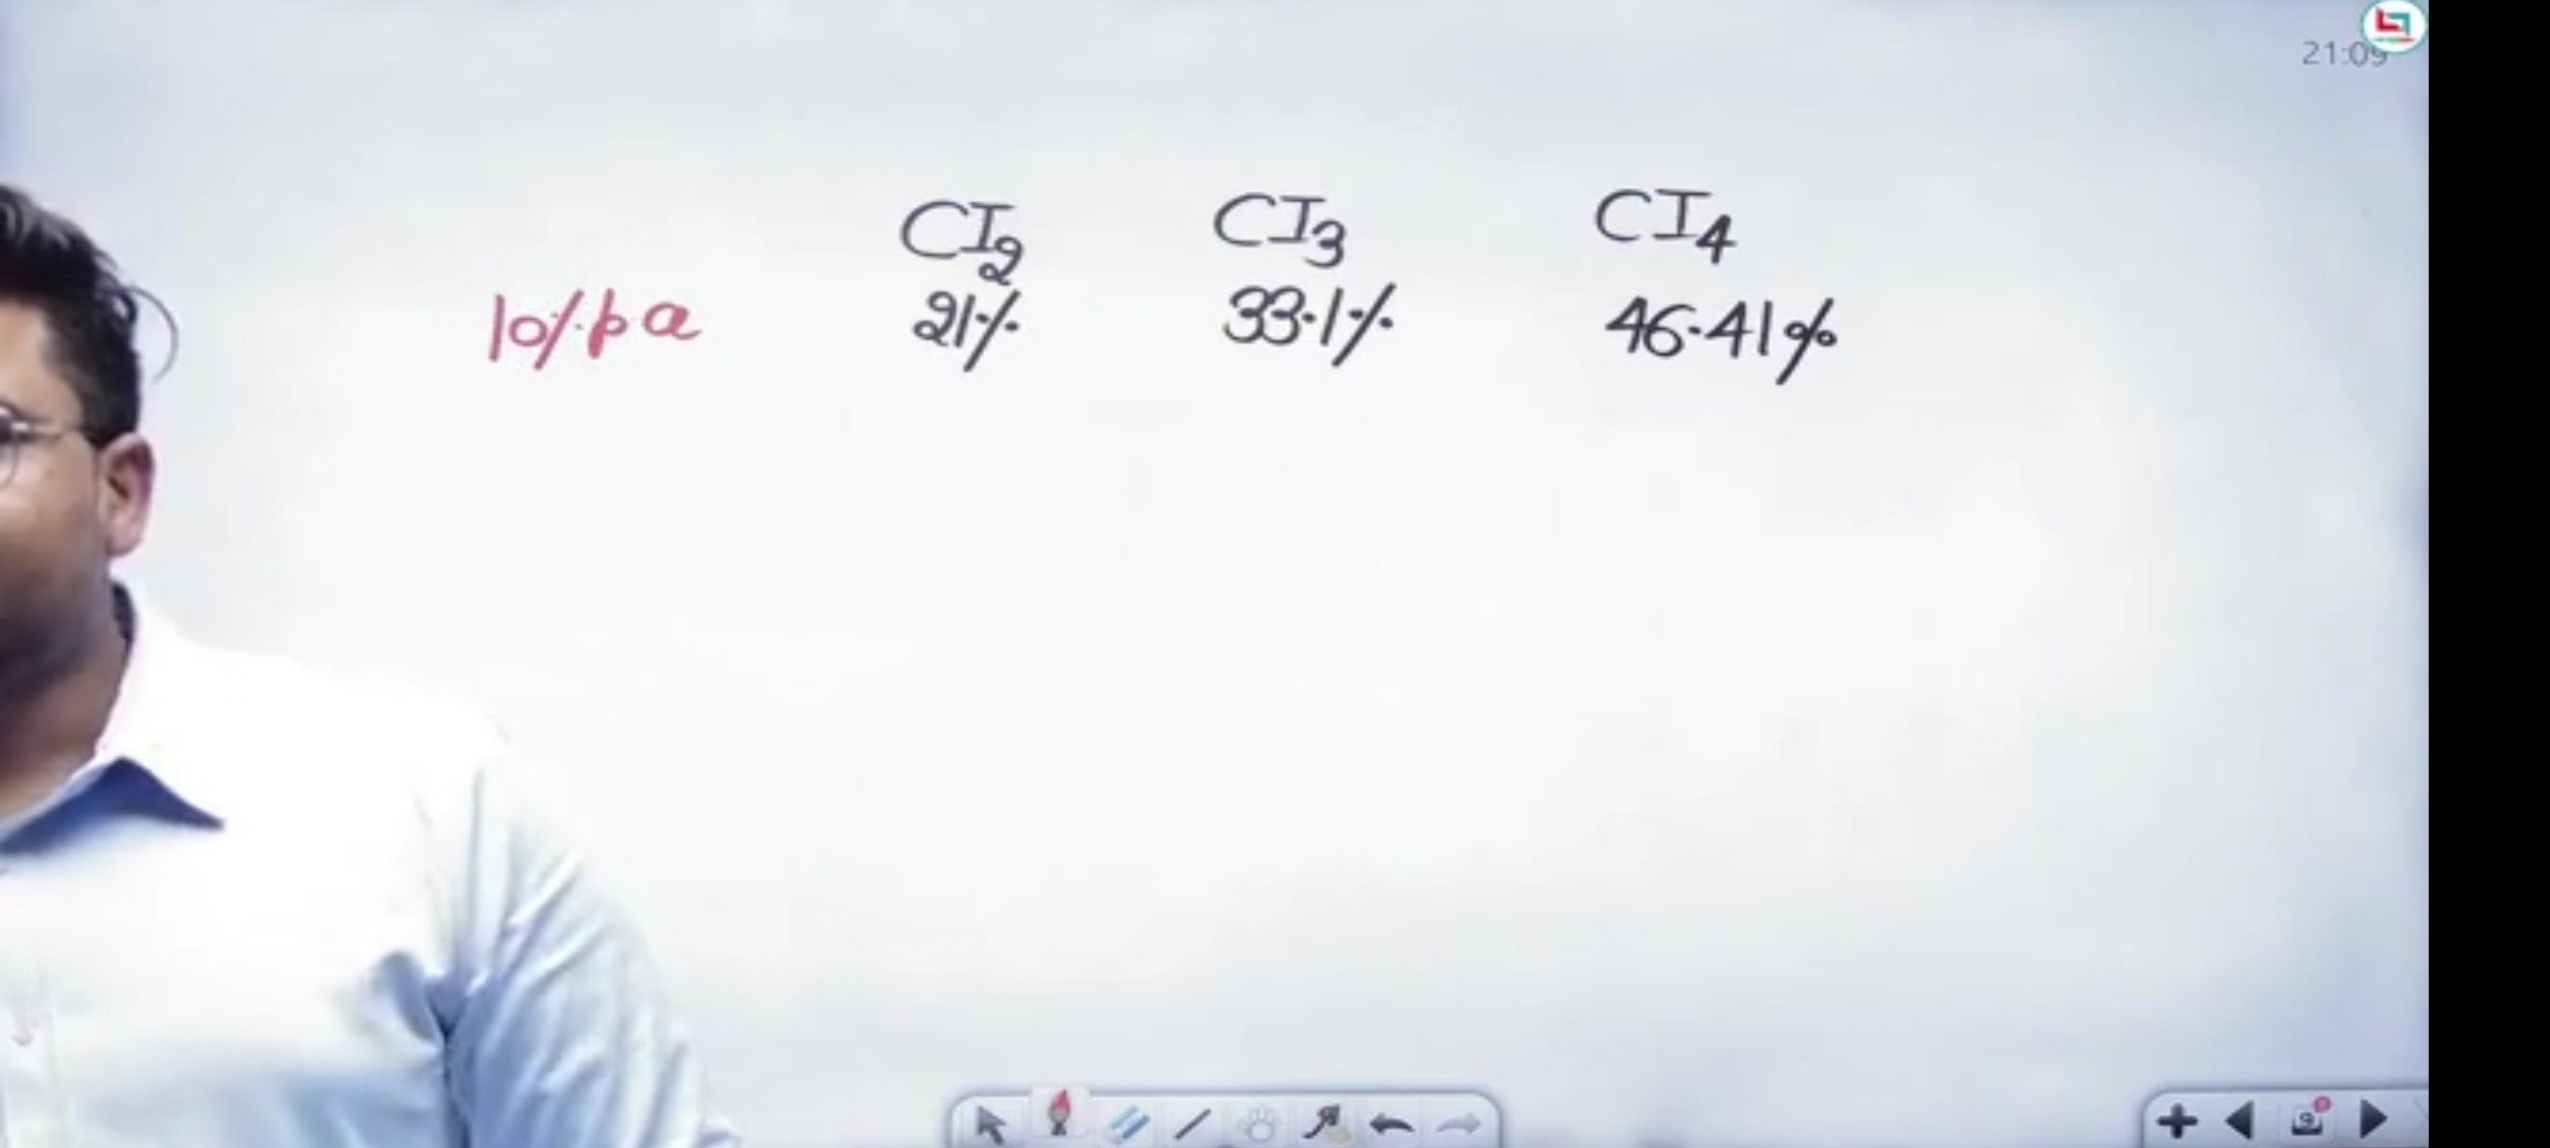 CI2 CI3 CI4
10% pa 21% 33.1% 46.41%